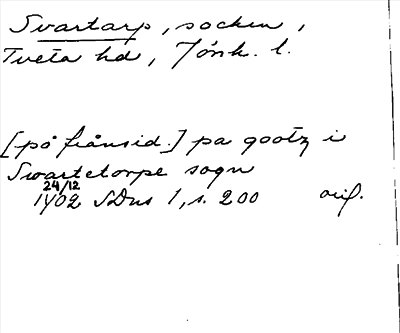 Svartarp, socken,
Tveta hd, Jönk. l.
[på frånsid.] pa gootz i
Swartetorpe sogn
24/12
1402 SDns 1, s. 200 orig.